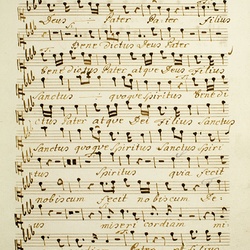 Deus Pater Pater Filius
Benedictus Deus Pater
benedictus Pater atque Deus Filius
Sanctus quoque Spiritus benedi
ctus Pater atque Dei Filius Sanctus
Sanctus quoque Spiritus Sanctus Spiri
tus Spiritus quia fecit
nobiscum fecit nobiscum
misericordiam